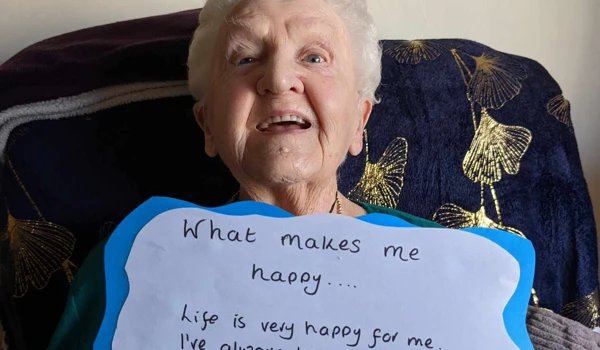 What makes me
happy....
Life is very happy for me.
I've always